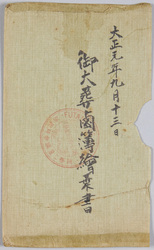 大正元年九月十三日
御大葬鹵簿繪葉書